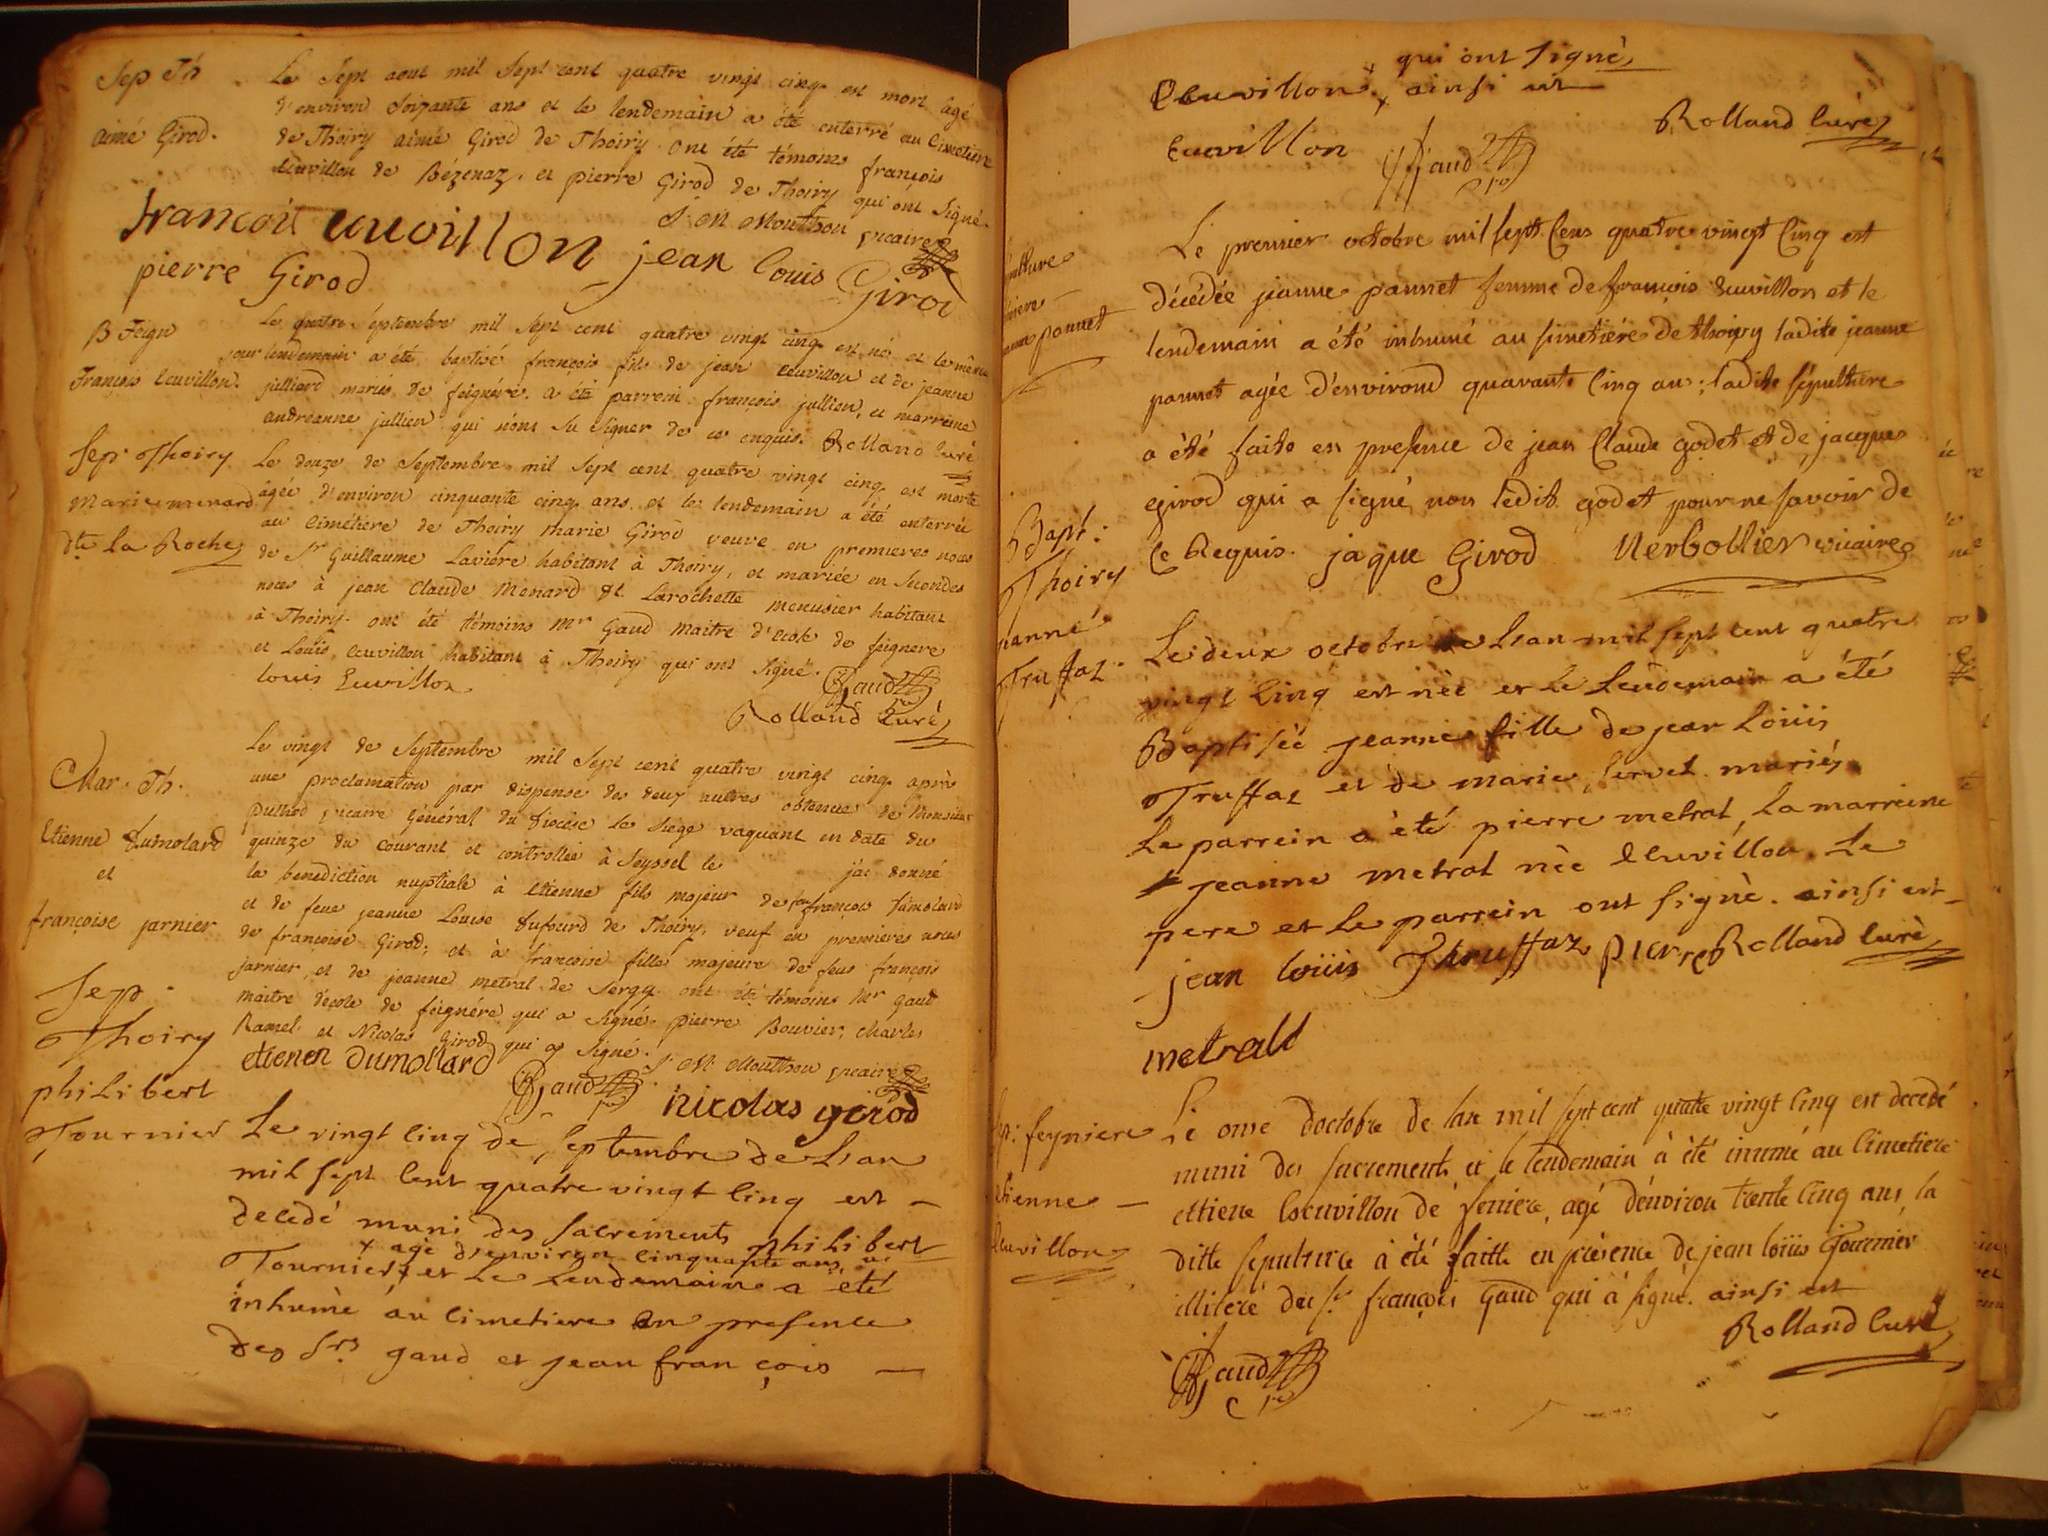 Sep Th
aimé Girod.
Le Sept aout mil Sept cent quatre vingt cinq est mort agé
d'environ Soixante ans et le lendemain a été enterré au Cimetiere
de Thoiry aimé Girod de Thoiry. Ont été témoins françois
Leuvillon de Bézenaz, et pierre Girod de Thoiry qui ont Signé.
J. M. Mouthon vicaire
francoit Levvillon
pierre Girod
jean louis Girod
B Feign
François Leuvillon.
Le quatre Septembre mil Sept cent quatre vingt cinq est né et le même
jour lendemain a été baptisé françois fils de jean Leuvillon et de jeanne
julliard mariés de feignére. a été parrein françois jullien, et marreine
andréanne jullien qui n'ont Su Signer de ce enquis. Rolland Curé
Sep. Thoiry
Marie menard
dte la Roche
Le douze de Septembre mil Sept cent quatre vingt cinq est morte
âgée d'environ cinquante cinq ans et le lendemain a été enterrée
au Cimétiére de Thoiry Marie Girod veuve en premieres noces
de Sr Guillaume Laviére habitant à Thoiry, et mariée en Secondes
noces à jean Claude Menard dt Larochette menusier habitant
à Thoiry. ont été témoins Mr Gaud Maitre d'école de feignere
et Louis Leuvillon habitant à Thoiry qui ont Signé.
louis Luvillon
Gaud
Rolland Curé
Mar. Th.
Etienne Dumolard
et
françoise jarnier
Le vingt de Septembre mil Sept cent quatre vingt cinq après
une proclamation par dispense des deux autres obtenue de Monsieur
vicaire Général du Diocèse le Siége vaquant en date du
quinze du courant et controllée à Seyssel le j'ai donné
la benediction nuptiale à etienne fils majeur de feu françois Dumolard
et de feue jeanne Louise Dufourd de Thoiry, veuf en premieres noces
de françoise Girod; et à françoise fille majeure de feus françois
jarnier, et de jeanne metral de Sergy. ont été témoins Mr gaud
maitre d'école de feignére qui a Signé. pierre Bouvier, charles
Ramel et Nicolas Girod qui a Signé.
J. M. Mouthon vicaire
etienen Dumollard
Gaud
nicolas gerod
Sep.
Thoiry
philibert
Tournier
Le vingt cinq de Septembre de L'an
mil sept Cent quatre vingt cinq est
decedé muni des sacrements philibert
x agé d'environ cinquante ans
Tournier x et le Lendemain a été
inhumé au Cimetiere en presence
des Srs gaud et jean françois
Leuvillon x ainsi est
x qui ont signé
Rolland Curé
Luvillon
Gaud
pannet
Le premier octobre mil sept Cens quatre vingt Cinq est
décédée jeanne pannet femme de françois Leuvillon et le
lendemain a été inhumé au simetiére de thoiry ladite jeanne
pannet agée d'environd quarante Cinq ans; ladite sépulture
a été faite en presence de jean Claude godet et de jacques
girod qui a signé non ledit godet pour ne savoir de
Ce Requis. jaque Girod Nerbollier vicaire
Bapt:
Thoiry
jeanne
Truffaz
Le deux octobre de L'an mil sept cent quatre
vingt cinq est née et le Lendemain a été
Baptisée jeanne fille de jean Loüis
Truffaz et de marie servet mariés
Le parrein a été pierre metral, La marreine
jeanne metral née Leuvillon. Le
pere et Le parrein ont signé. ainsi est
jean loüis Thruffaz pierre Rolland Curé
metrald
Sep: feyniere
etienne
Leuvillon
Le onse doctobre de lan mil sept cent quatre vingt cinq est decedé
muni des sacrements et le lendemain à été inumé au Cimetiere
ettiene Leeuvillon dé feniere, agé dénviron trente cinq ans, la
ditte sepulture à été faitte en présence de jean loüis Tournier
illiteré du sr françois Gaud qui à signé. ainsi est
Rolland Curé
Gaud